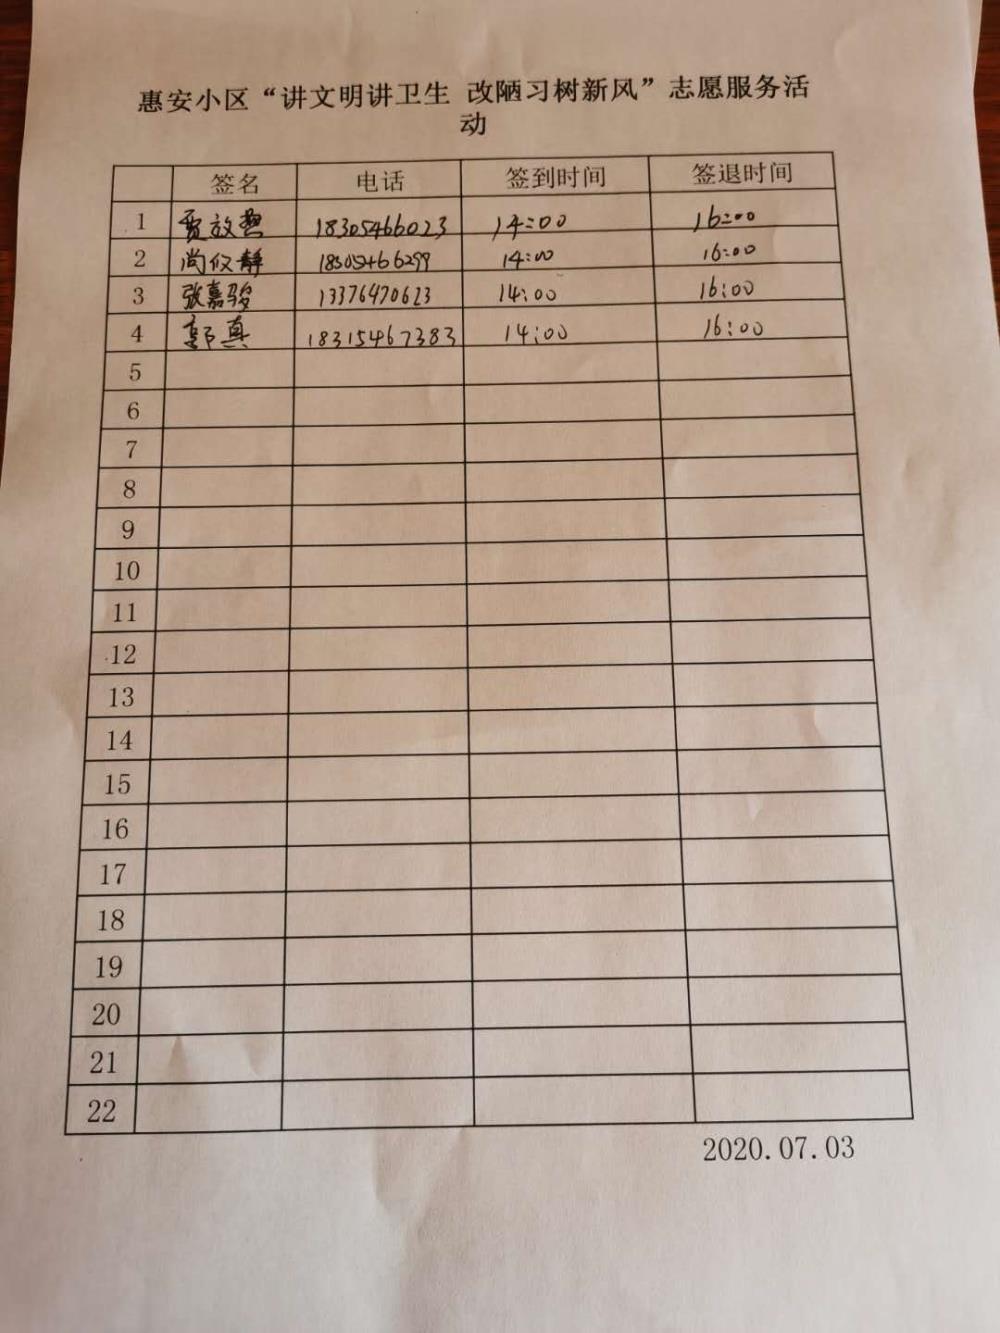 惠安小区“讲文明讲卫生 改陋习树新风”志愿服务活
动
签名 电话 签到时间 签退时间
1 贾放 18305466023 14:00 16:00
2 尚仪静 18305466299 14:00 16:00
3 张嘉骏 13376470623 14:00 16:00
4 郭真 18315467383 14:00 16:00
5
6
7
8
9
10
11
12
13
14
15
16
17
18
19
20
21
22
2020.07.03